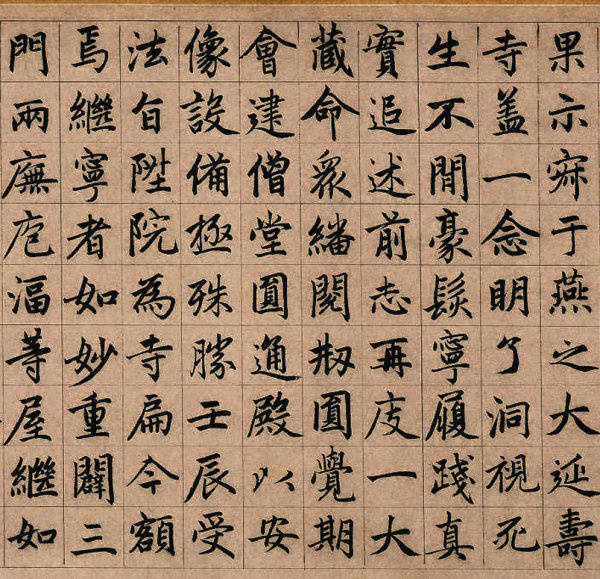 果示寂于燕之大延壽
寺盖一念明了洞視死
生不間豪髮寧履踐真
實追述前志再度一大
藏命眾繙閱刱圓覺期
會建僧堂圓通殿以安
像設備極殊勝壬辰受
法旨陞院為寺扁今額
焉繼寧者如妙重闢三
門兩廡庖湢等屋繼如